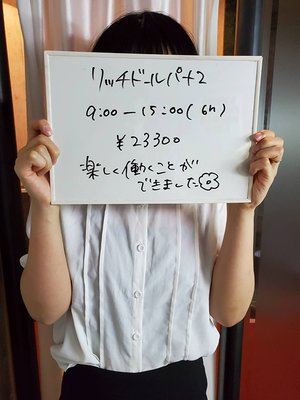 リッチドールパート2
9:00－15:00(6h)
¥23300
楽しく働くことが
できました